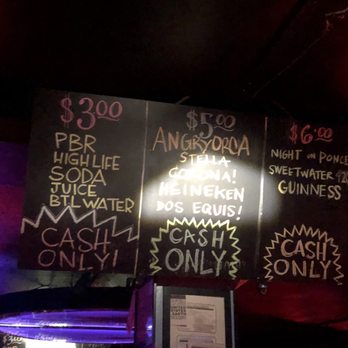 $3.00
PBR
HIGH LIFE
SODA
JUICE
BTL WATER
CASH
ONLY!
$5.00
ANGRY ORCA
STELLA
CORONA!
HEINEKEN
DOS EQUIS!
CASH
ONLY!
$6.00
NIGHT ON PONCE
SWEETWATER 420
GUINNESS
CASH
ONLY!